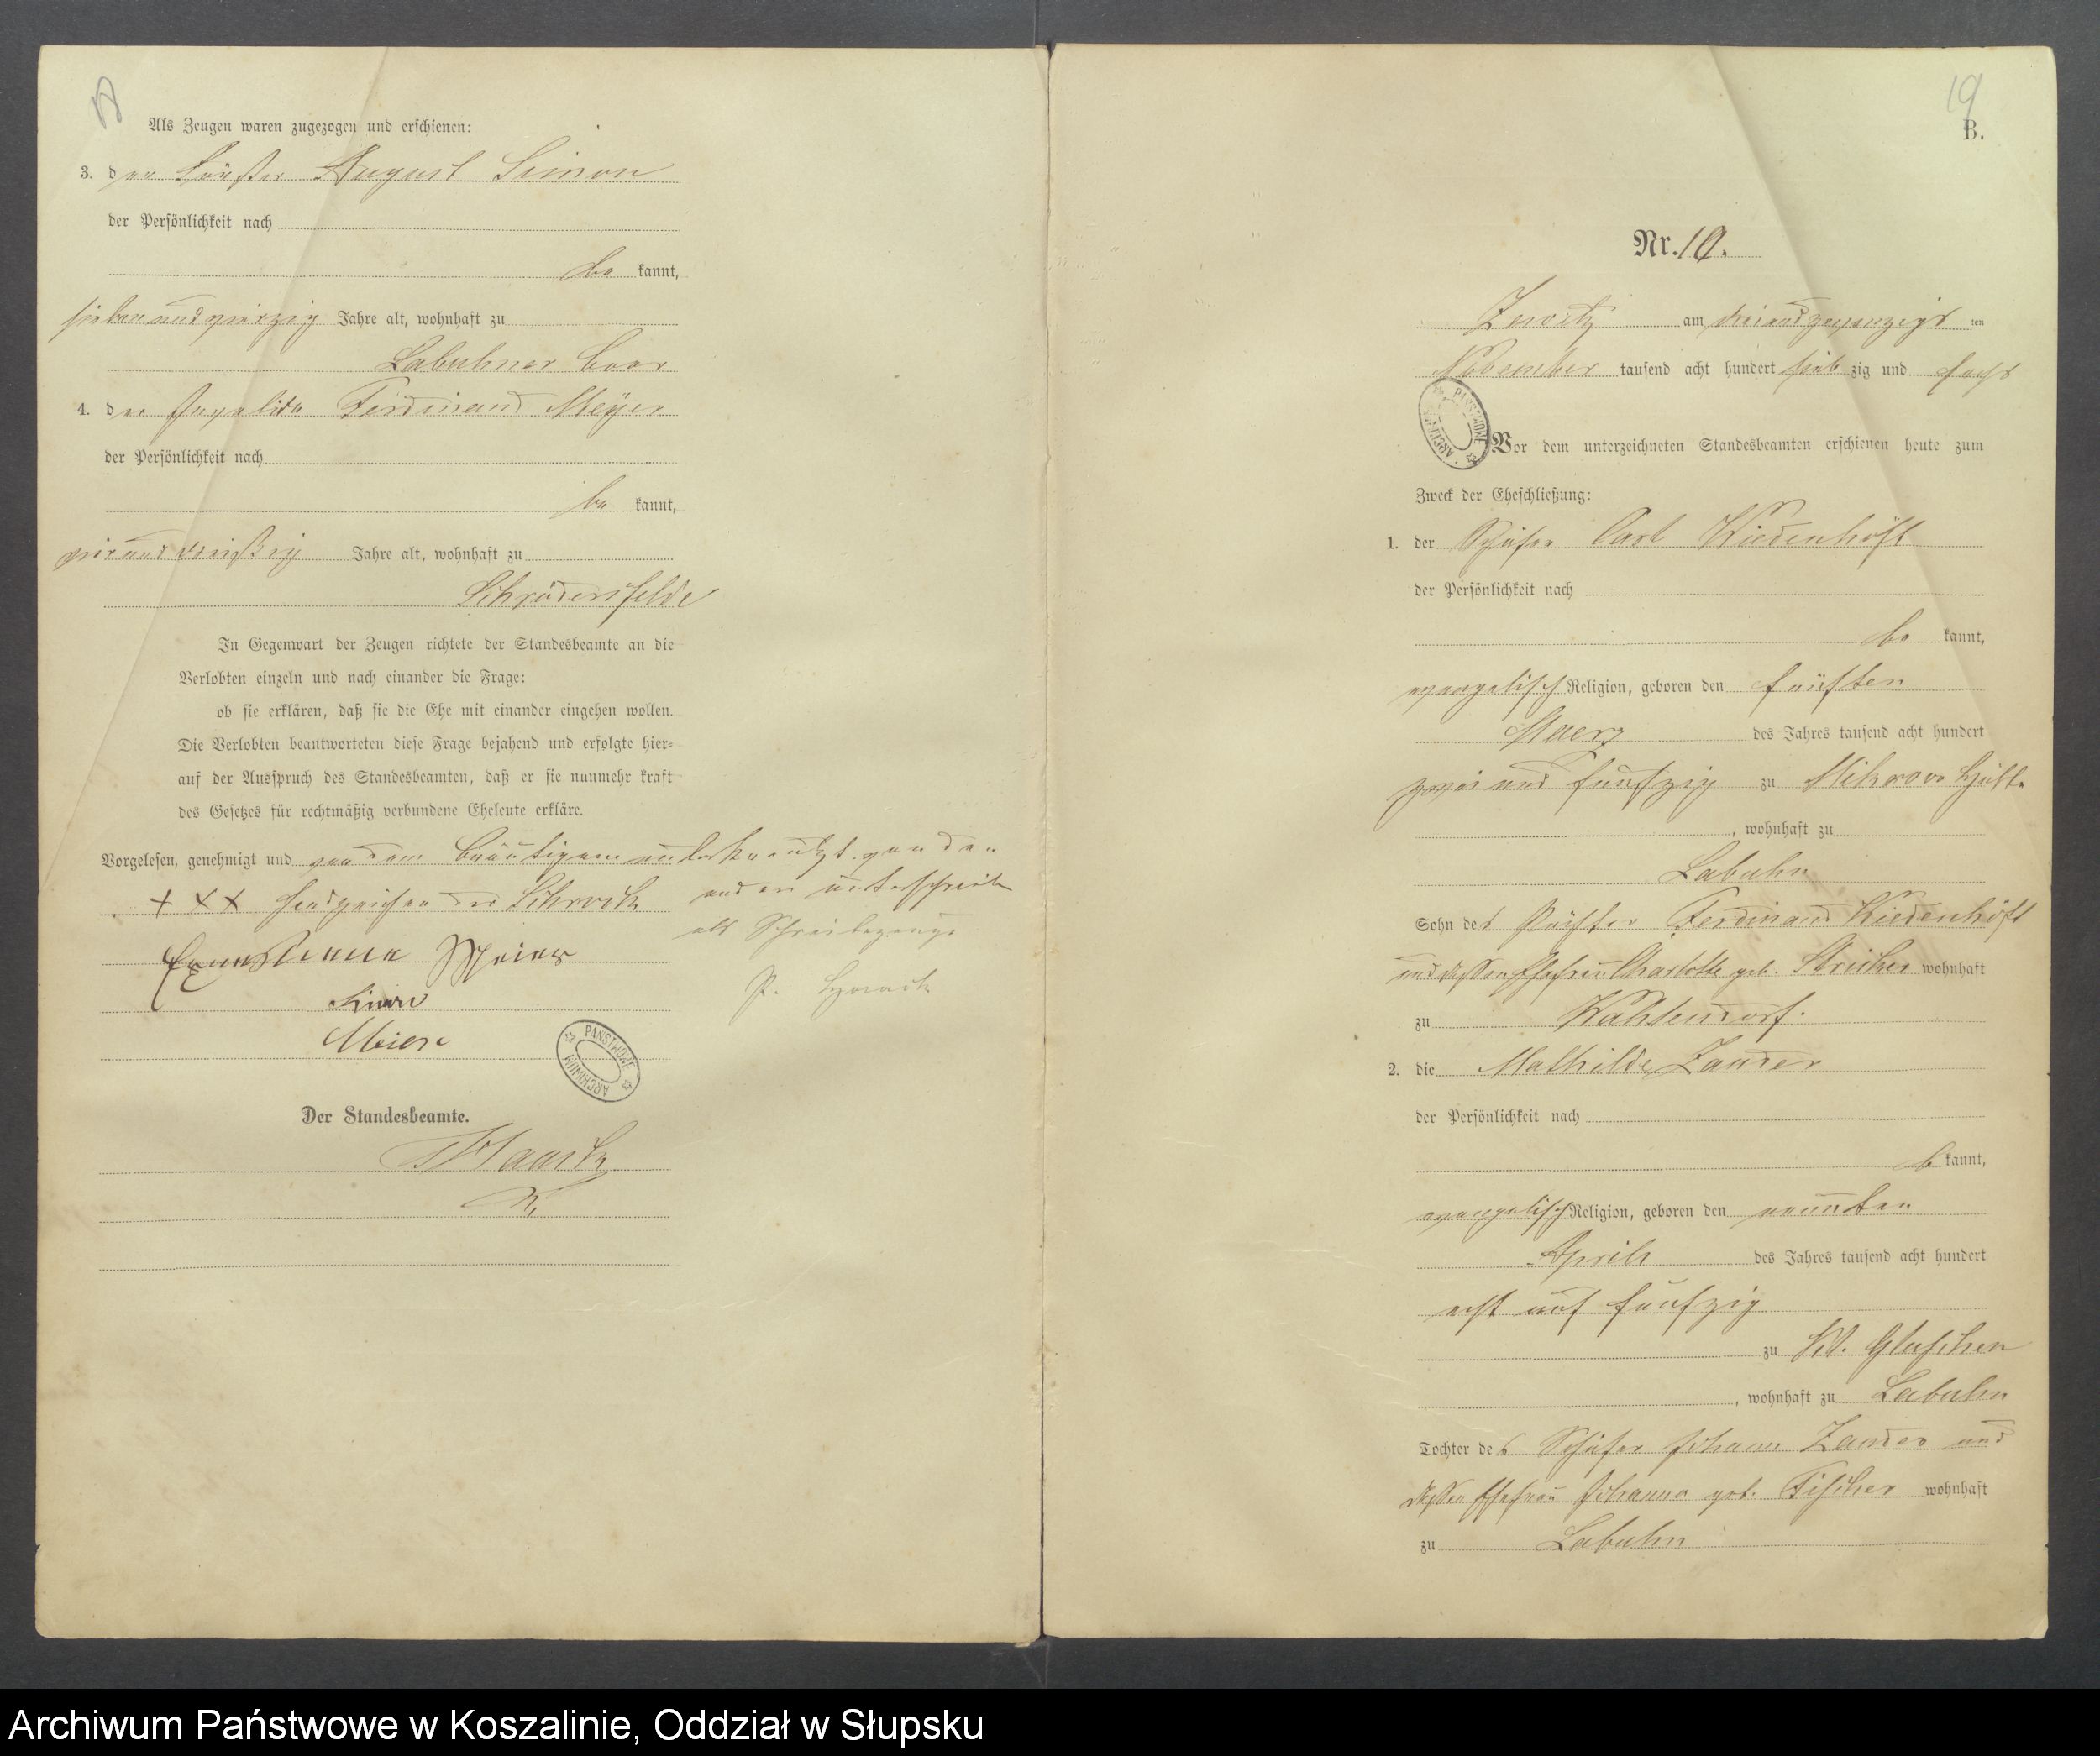 Als Zeugen waren zugezogen und erschienen:
3. den August Simon
der Persönlichkeit nach
be kannt,
siebenundvierzig Jahre alt, wohnhaft zu
Labuhner
4. den Invalide Ferdinand Meyer
der Persönlichkeit nach
be kannt,
vierunddreißig Jahre alt, wohnhaft zu
Schrödersfelde
In Gegenwart der Zeugen richtete der Standesbeamte an die
Verlobten einzeln und nach einander die Frage:
ob sie erklären, daß sie die Ehe mit einander eingehen wollen.
Die Verlobten beantworteten diese Frage bejahend und erfolgte hier-
auf der Ausspruch des Standesbeamten, daß er sie nunmehr kraft
des Gesetzes für rechtmäßig verbundene Eheleute erkläre.
Vorgelesen, genehmigt und von dem Bräutigam unterkreuzt von den
andern unterschrieben
+ X X Handzeichen des
als Schreibezeuge
Meier
PAŃSTWOWE ARCHIWUM
Der Standesbeamte.
19
B.
Nr. 10.
Zewitz am dreiundzwanzigsten
November tausend acht hundert siebzig und sechs
PAŃSTWOWE ARCHIWUM
Vor dem unterzeichneten Standesbeamten erschienen heute zum
Zweck der Eheschließung:
1. der Schäfer Carl Kiedenhöft
der Persönlichkeit nach
be kannt,
evangelisch Religion, geboren den fünften
Maerz des Jahres tausend acht hundert
zwei und fünfzig zu
, wohnhaft zu
Labuhn
Sohn des Ferdinand Kiedenhöft
und dessen Ehefrau Charlotte geb. wohnhaft
zu
2. die Mathilde Zander
der Persönlichkeit nach
be kannt,
evangelisch Religion, geboren den neunten
April des Jahres tausend acht hundert
acht und fünfzig
zu Kl. Gluschen
, wohnhaft zu Labuhn
Tochter des Schäfer Johann Zander und
dessen Ehefrau Johanna geb. Fischer wohnhaft
zu Labuhn
Archiwum Państwowe w Koszalinie, Oddział w Słupsku